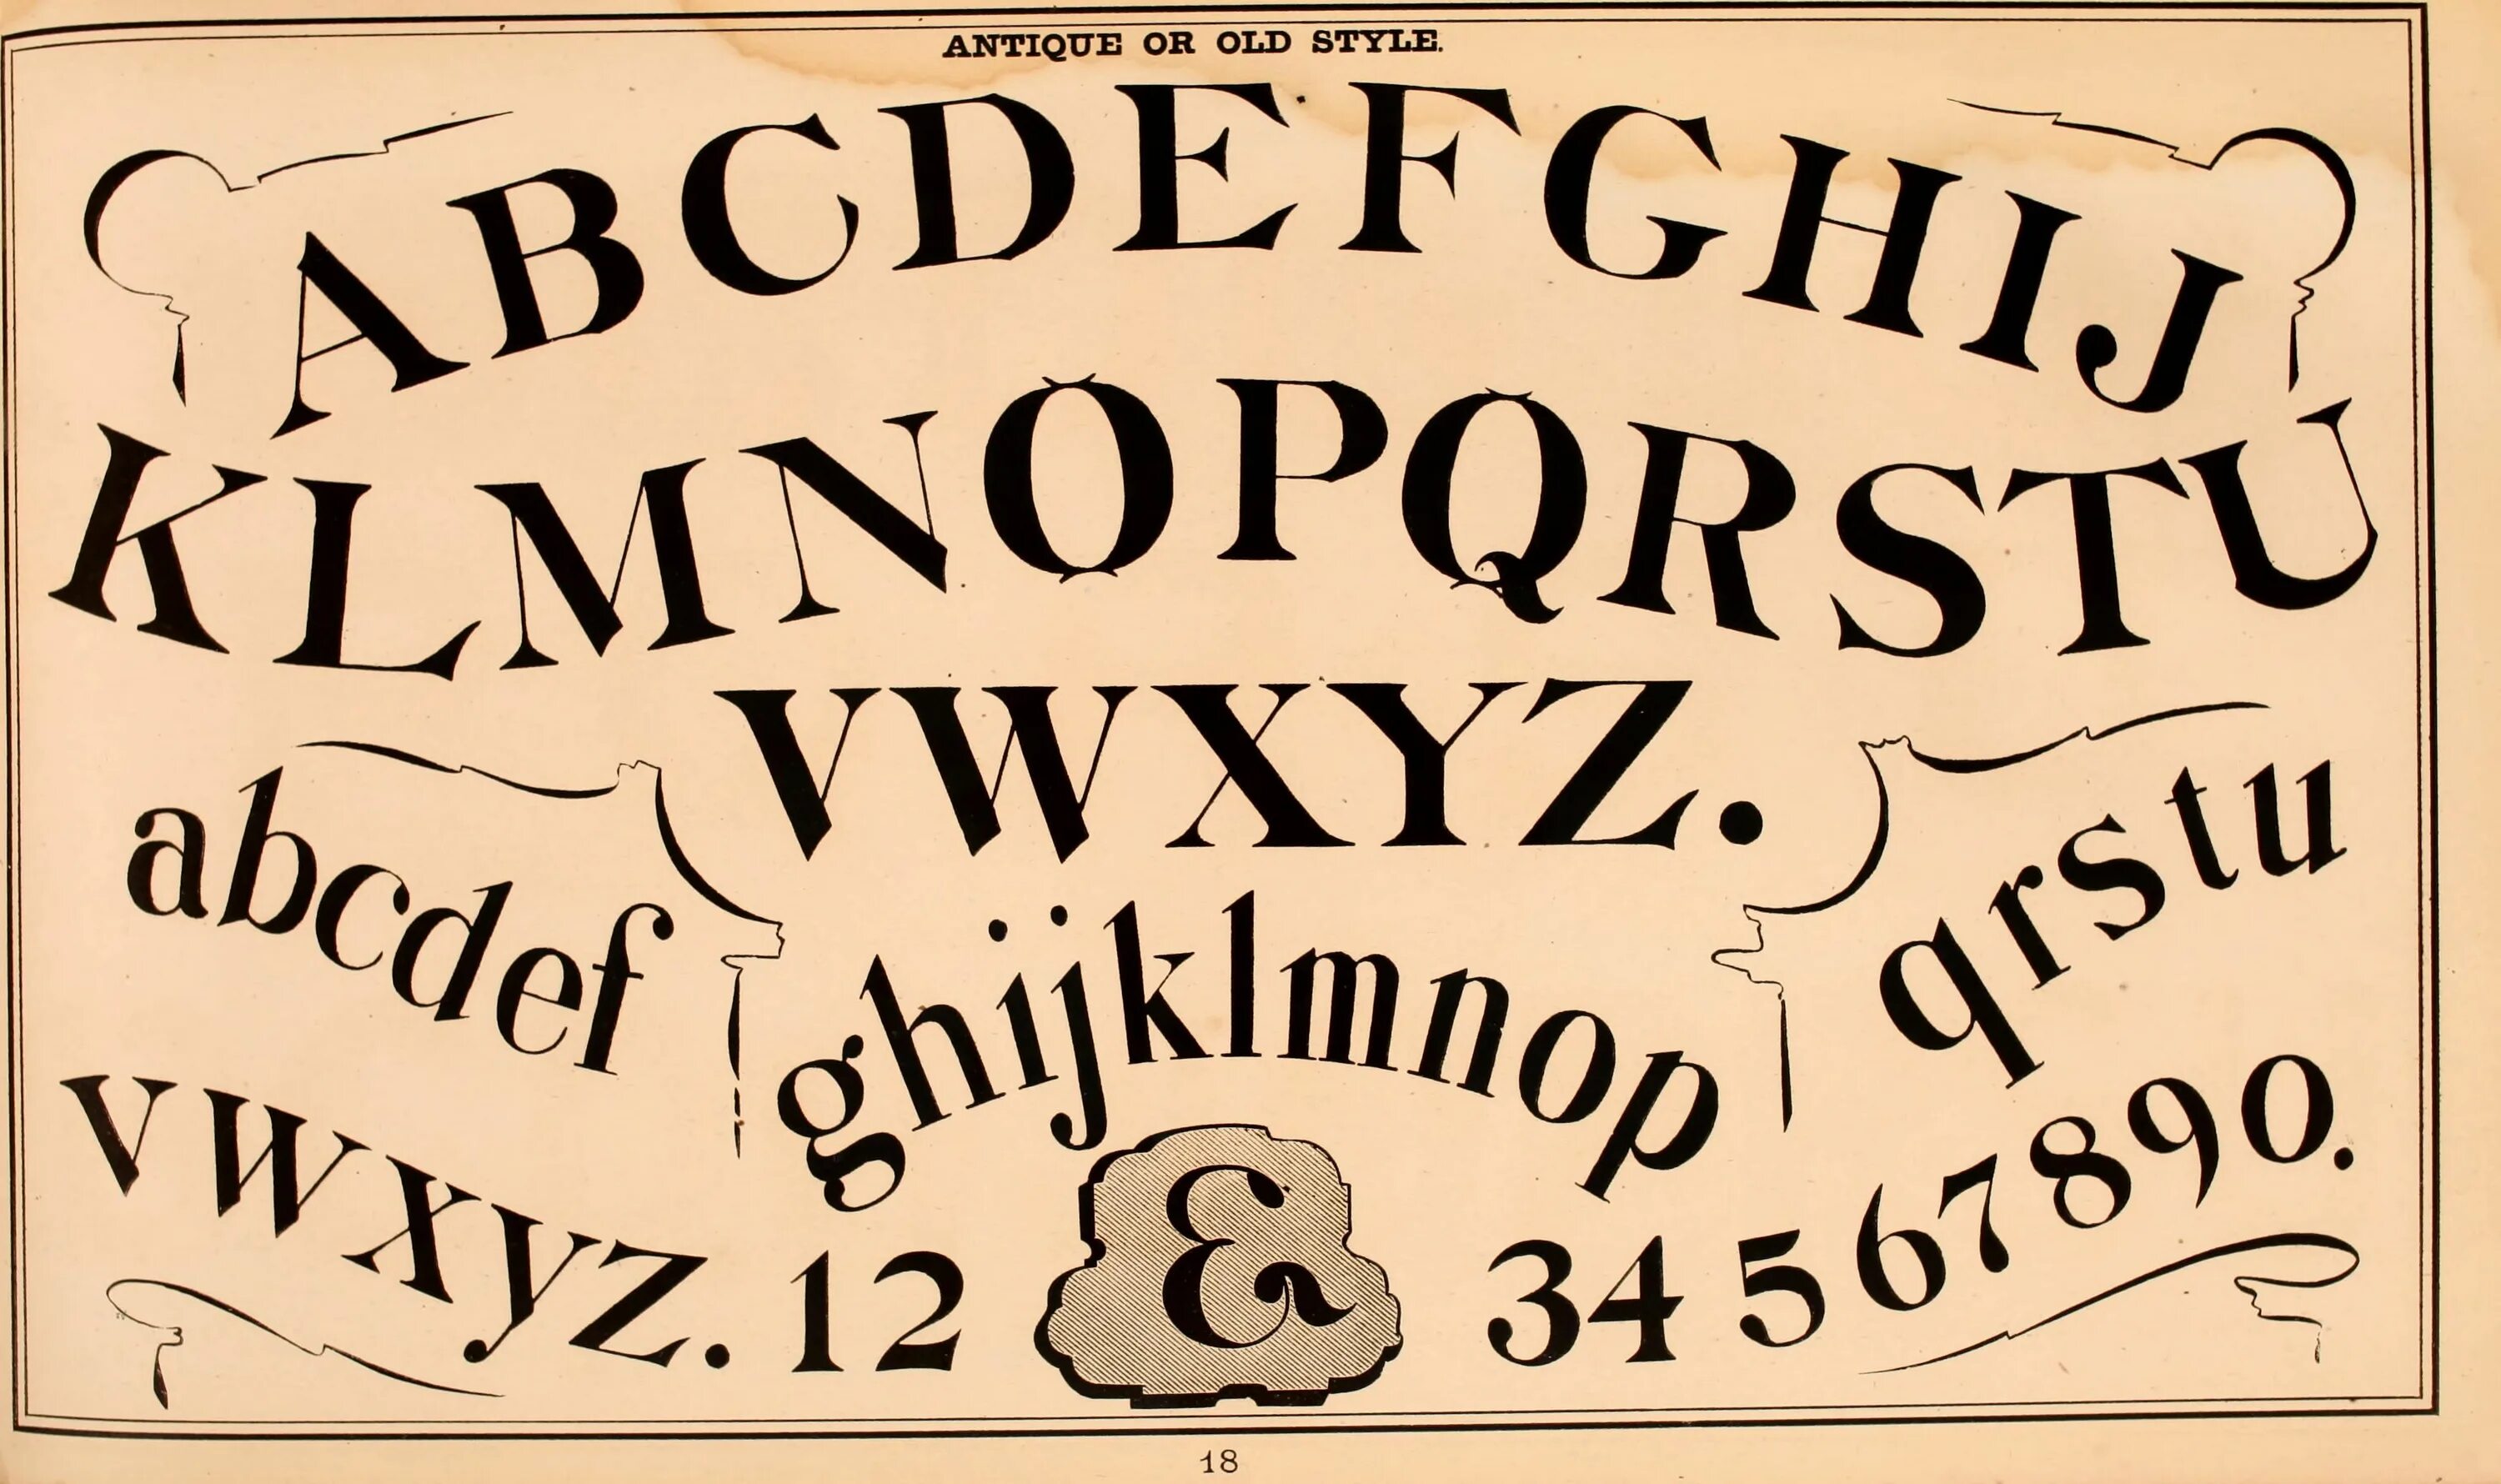 ANTIQUE OR OLD STYLE.
ABCDEFGHIJ
KLMNOPQRSTU
VWXYZ.
abcdef
ghijklmnop
qrstu
vwxyz.
12
&
34567890.
18